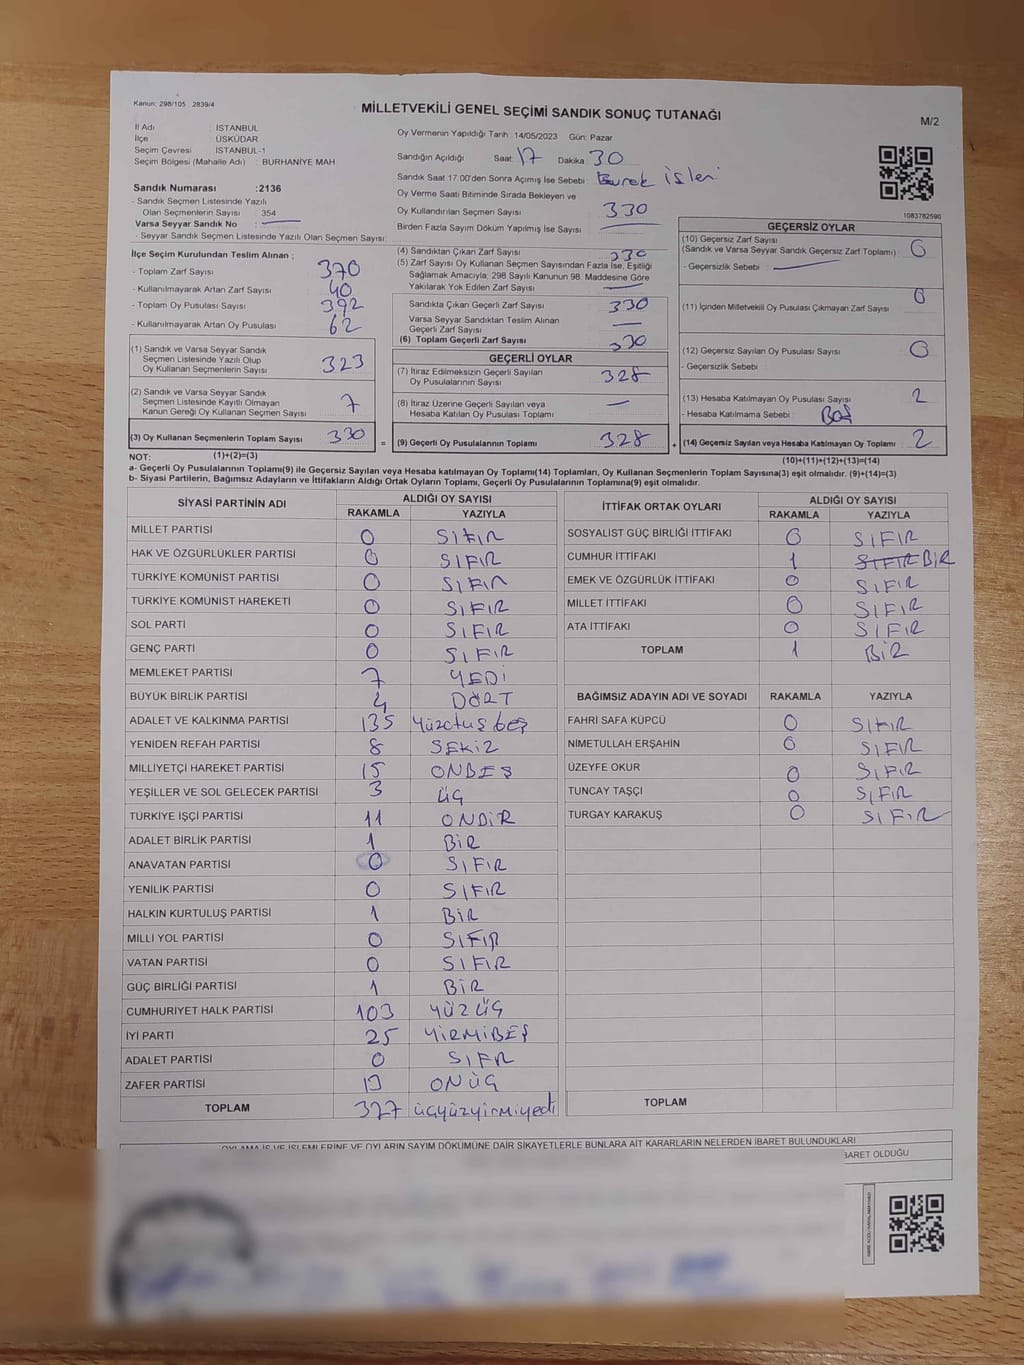 Kanun: 298/105 2839/4
MİLLETVEKİLİ GENEL SEÇİMİ SANDIK SONUÇ TUTANAĞI
M/2
İl Adı : İSTANBUL
İlçe : ÜSKÜDAR
Seçim Çevresi : İSTANBUL-1
Seçim Bölgesi (Mahalle Adı) : BURHANİYE MAH
Sandık Numarası :2136
- Sandık Seçmen Listesinde Yazılı
Olan Seçmenlerin Sayısı : 354
Varsa Seyyar Sandık No :
- Seyyar Sandık Seçmen Listesinde Yazılı Olan Seçmen Sayısı:
İlçe Seçim Kurulundan Teslim Alınan ;
- Toplam Zarf Sayısı 370
- Kullanılmayarak Artan Zarf Sayısı 40
- Toplam Oy Pusulası Sayısı 392
- Kullanılmayarak Artan Oy Pusulası 62
(1) Sandık ve Varsa Seyyar Sandık
Seçmen Listesinde Yazılı Olup
Oy Kullanan Seçmenlerin Sayısı 323
(2) Sandık ve Varsa Seyyar Sandık
Seçmen Listesinde Kayıtlı Olmayan
Kanun Gereği Oy Kullanan Seçmen Sayısı 7
(3) Oy Kullanan Seçmenlerin Toplam Sayısı 330 =
Oy Vermenin Yapıldığı Tarih : 14/05/2023 Gün: Pazar
Sandığın Açıldığı Saat: 17 Dakika: 30
Sandık Saat 17:00'den Sonra Açılmış İse Sebebi : Evrak işleri
Oy Verme Saati Bitiminde Sırada Bekleyen ve
Oy Kullandırılan Seçmen Sayısı 330
Birden Fazla Sayım Döküm Yapılmış İse Sayısı :
(4) Sandıktan Çıkan Zarf Sayısı 330
(5) Zarf Sayısı Oy Kullanan Seçmen Sayısından Fazla İse, Eşitliği
Sağlamak Amacıyla; 298 Sayılı Kanunun 98. Maddesine Göre
Yakılarak Yok Edilen Zarf Sayısı
Sandıkta Çıkan Geçerli Zarf Sayısı 330
Varsa Seyyar Sandıktan Teslim Alınan
Geçerli Zarf Sayısı
(6) Toplam Geçerli Zarf Sayısı 330
GEÇERLİ OYLAR
(7) İtiraz Edilmeksizin Geçerli Sayılan
Oy Pusulalarının Sayısı 328
(8) İtiraz Üzerine Geçerli Sayılan veya
Hesaba Katılan Oy Pusulası Toplamı
(9) Geçerli Oy Pusulalarının Toplamı 328 +
1083782590
GEÇERSİZ OYLAR
(10) Geçersiz Zarf Sayısı
(Sandık ve Varsa Seyyar Sandık Geçersiz Zarf Toplamı) : 0
- Geçersizlik Sebebi :
(11) İçinden Milletvekili Oy Pusulası Çıkmayan Zarf Sayısı 0
(12) Geçersiz Sayılan Oy Pusulası Sayısı 0
- Geçersizlik Sebebi
(13) Hesaba Katılmayan Oy Pusulası Sayısı 2
- Hesaba Katılmama Sebebi : Boş
(14) Geçersiz Sayılan veya Hesaba Katılmayan Oy Toplamı 2
NOT: (1)+(2)=(3) (10)+(11)+(12)+(13)=(14)
a- Geçerli Oy Pusulalarının Toplamı(9) ile Geçersiz Sayılan veya Hesaba katılmayan Oy Toplamı(14) Toplamları, Oy Kullanan Seçmenlerin Toplam Sayısına(3) eşit olmalıdır. (9)+(14)=(3)
b- Siyasi Partilerin, Bağımsız Adayların ve İttifakların Aldığı Ortak Oyların Toplamı, Geçerli Oy Pusulalarının Toplamına(9) eşit olmalıdır.
SİYASİ PARTİNİN ADI ALDIĞI OY SAYISI
RAKAMLA YAZIYLA
MİLLET PARTİSİ 0 SIFIR
HAK VE ÖZGÜRLÜKLER PARTİSİ 0 SIFIR
TÜRKİYE KOMÜNİST PARTİSİ 0 SIFIR
TÜRKİYE KOMÜNİST HAREKETİ 0 SIFIR
SOL PARTİ 0 SIFIR
GENÇ PARTİ 0 SIFIR
MEMLEKET PARTİSİ 7 YEDİ
BÜYÜK BİRLİK PARTİSİ 4 DÖRT
ADALET VE KALKINMA PARTİSİ 135 Yüzotuş beş
YENİDEN REFAH PARTİSİ 8 SEKİZ
MİLLİYETÇİ HAREKET PARTİSİ 15 ONBEŞ
YEŞİLLER VE SOL GELECEK PARTİSİ 3 ÜÇ
TÜRKİYE İŞÇİ PARTİSİ 11 ONBİR
ADALET BİRLİK PARTİSİ 1 BİR
ANAVATAN PARTİSİ 0 SIFIR
YENİLİK PARTİSİ 0 SIFIR
HALKIN KURTULUŞ PARTİSİ 1 BİR
MİLLİ YOL PARTİSİ 0 SIFIR
VATAN PARTİSİ 0 SIFIR
GÜÇ BİRLİĞİ PARTİSİ 1 BİR
CUMHURİYET HALK PARTİSİ 103 YÜZÜÇ
İYİ PARTİ 25 YİRMİBEŞ
ADALET PARTİSİ 0 SIFR
ZAFER PARTİSİ 13 ONÜÇ
TOPLAM 327 üçyüzyirmiyedi
İTTİFAK ORTAK OYLARI ALDIĞI OY SAYISI
RAKAMLA YAZIYLA
SOSYALİST GÜÇ BİRLİĞİ İTTİFAKI 0 SIFIR
CUMHUR İTTİFAKI 1 SIFIR BİR
EMEK VE ÖZGÜRLÜK İTTİFAKI 0 SIFIR
MİLLET İTTİFAKI 0 SIFIR
ATA İTTİFAKI 0 SIFIR
TOPLAM 1 BİR
BAĞIMSIZ ADAYIN ADI VE SOYADI RAKAMLA YAZIYLA
FAHRİ SAFA KÜPCÜ 0 SIFIR
NİMETULLAH ERŞAHİN 0 SIFIR
ÜZEYFE OKUR 0 SIFIR
TUNCAY TAŞÇI 0 SIFIR
TURGAY KARAKUŞ 0 SIFIR
TOPLAM
OYLAMA İŞ VE İŞLEMLERİNE VE OYLARIN SAYIM DÖKÜMÜNE DAİR ŞİKAYETLERLE BUNLARA AİT KARARLARIN NELERDEN İBARET BULUNDUKLARI
İBARET OLDUĞU